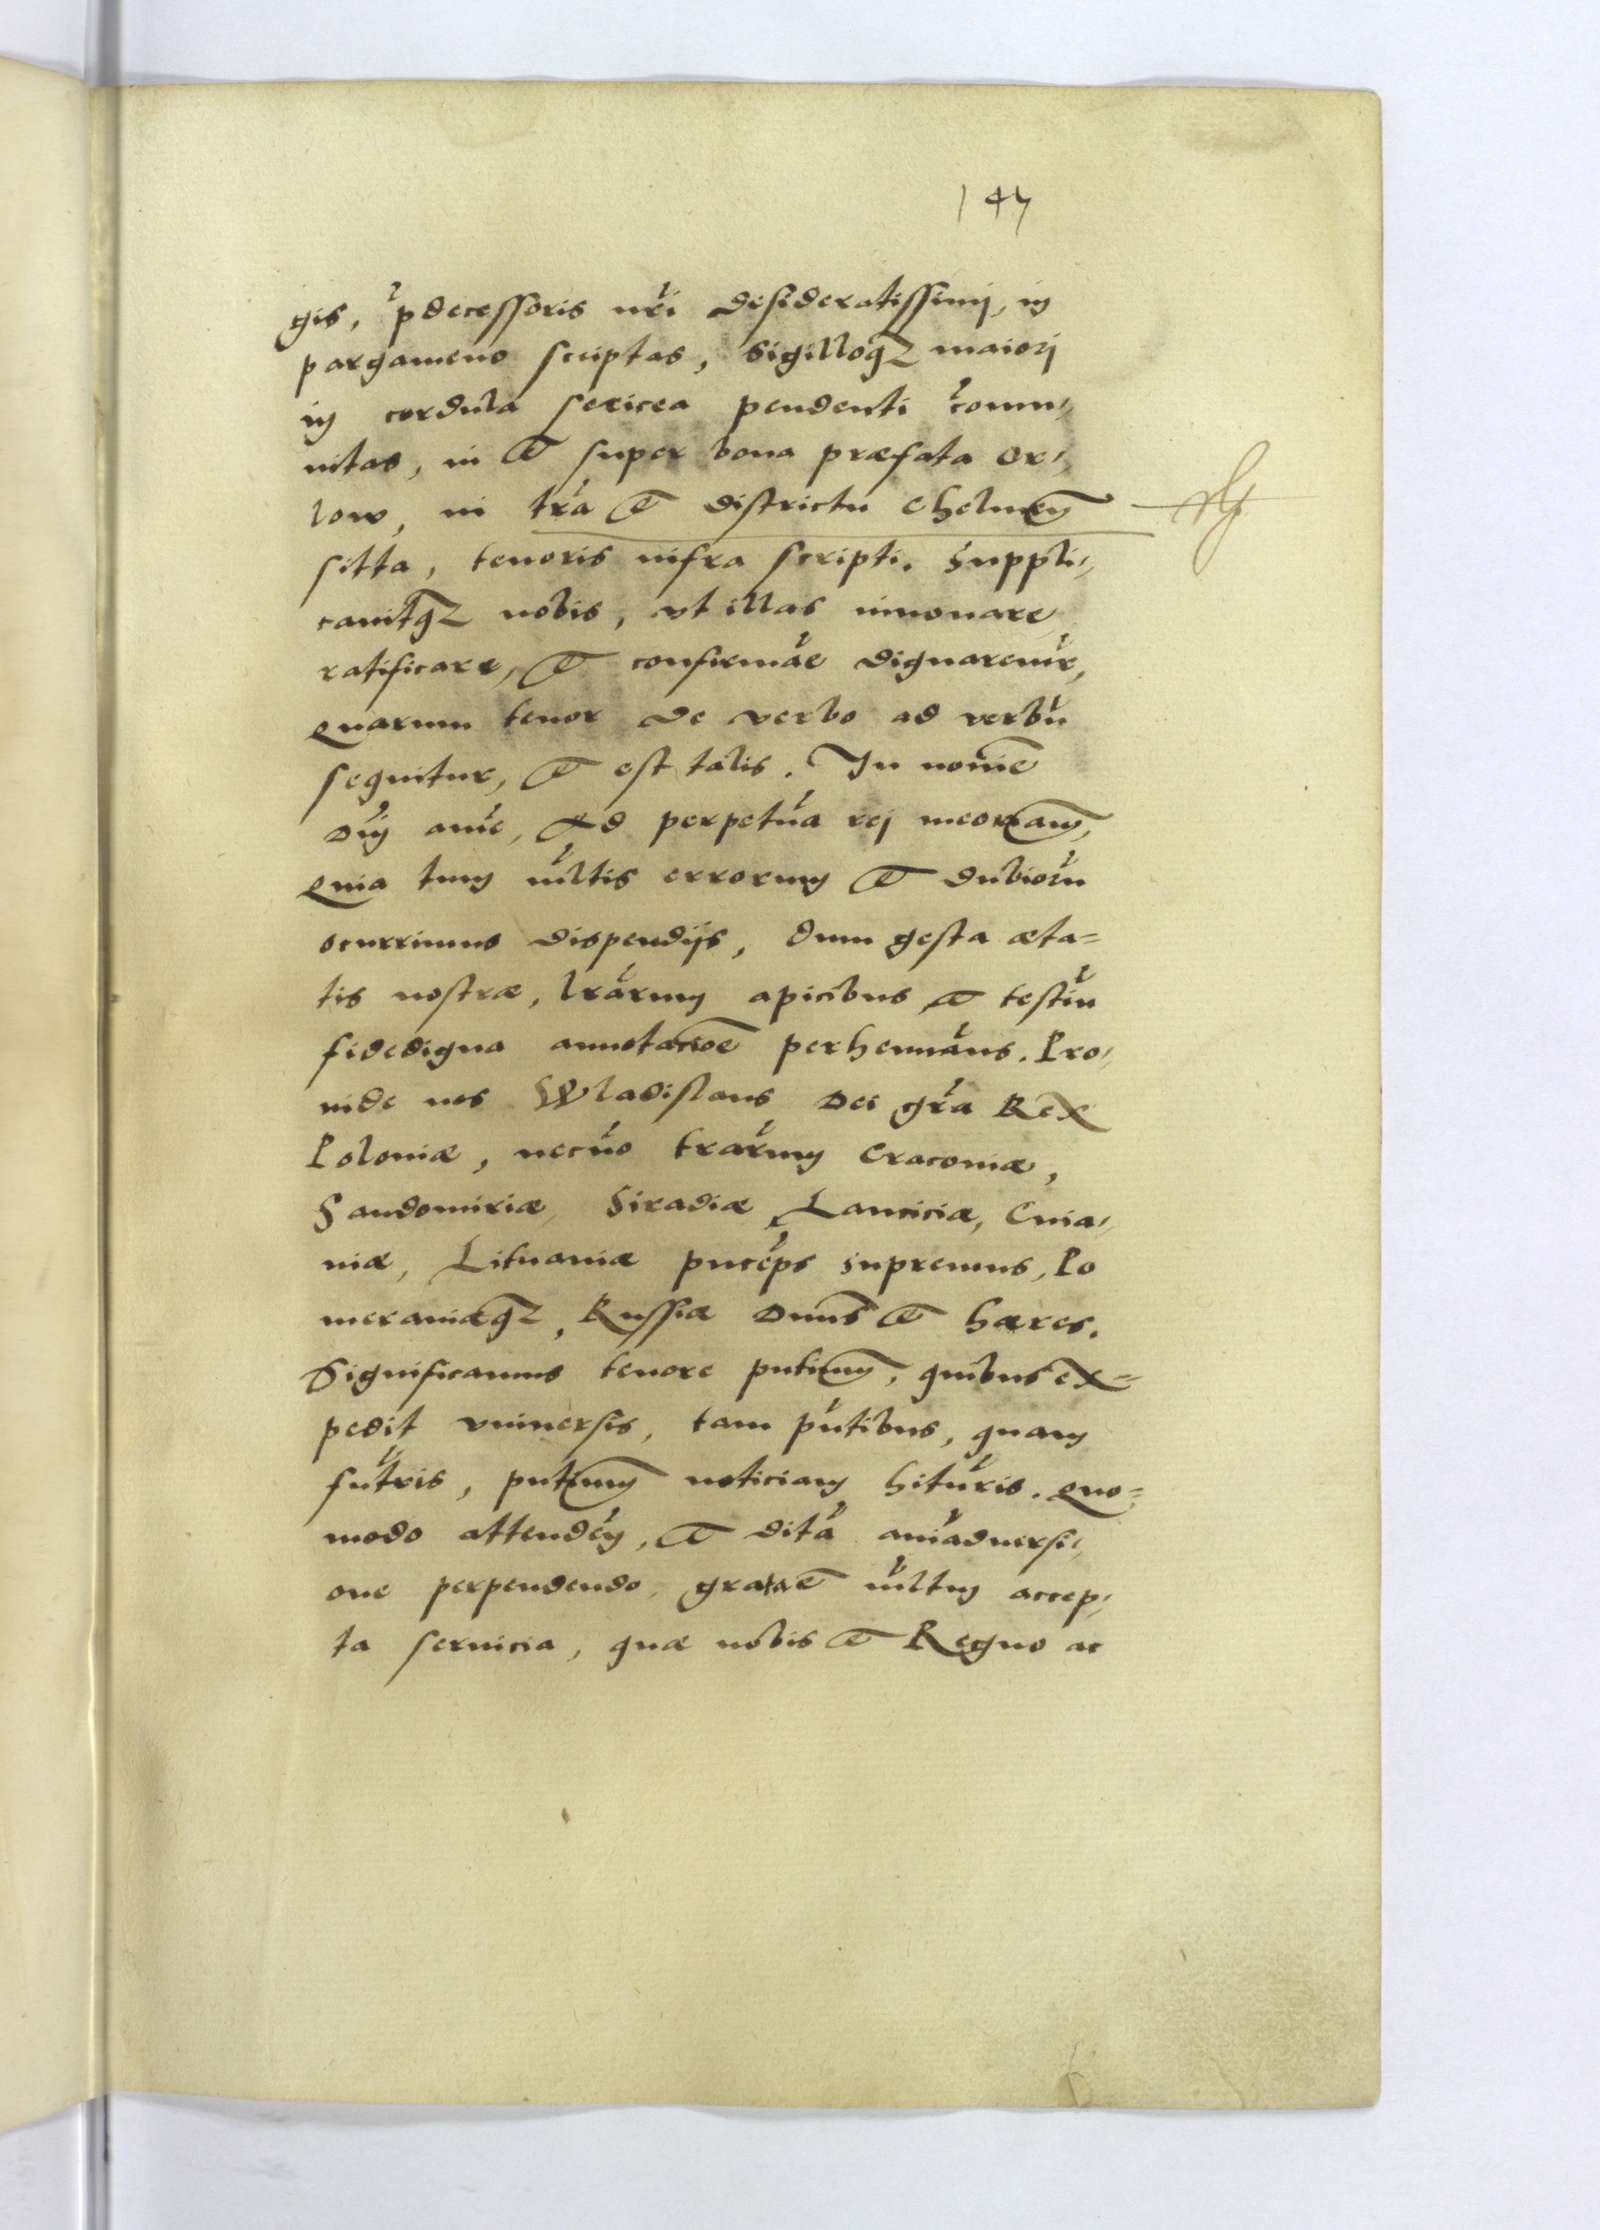 147
gis, pdecessoris nri desideratissimj, in
pargameno scriptas, sigilloqz maiorj
in cordula sericea pendenti comu-
nitas, in et super bona præfata Or-
low, in tra et districtu Chelmen
sitta, tenoris infra scripti. Suppli-
cauitqz nobis, vt illas innouare
ratificare, et confirmae dignaremr,
quarum tenor de verbo ad verbu
sequitur, et est talis. In nomie
Dnj ame, Ad perpetua rej meoriam,
Quia tum ultis errorum et dubioru
ocurrimus dispendijs, dum gesta æta=
tis nostræ, lrarum apicibus et testiu
fidedigna annotacioe perhennans. Pro-
inde nos Wladislaus Dei gra Rex
Poloniæ, necno trarum Cracouiæ,
Sandomiriæ, Siradiæ, Lanciciæ, Cuia-
uiæ, Lituaniæ princeps supremus, Po
meraniæqz, Russiæ Dnns et hæres.
Significamus tenore pntium, quibus ex=
pedit vniuersis, tam pntibus, quam
futris, pntium noticiam hituris. Quo=
modo attenden, et dita aniaduersi-
one perpendendo, gratae ultum accep-
ta seruicia, quæ nobis et Regno ac